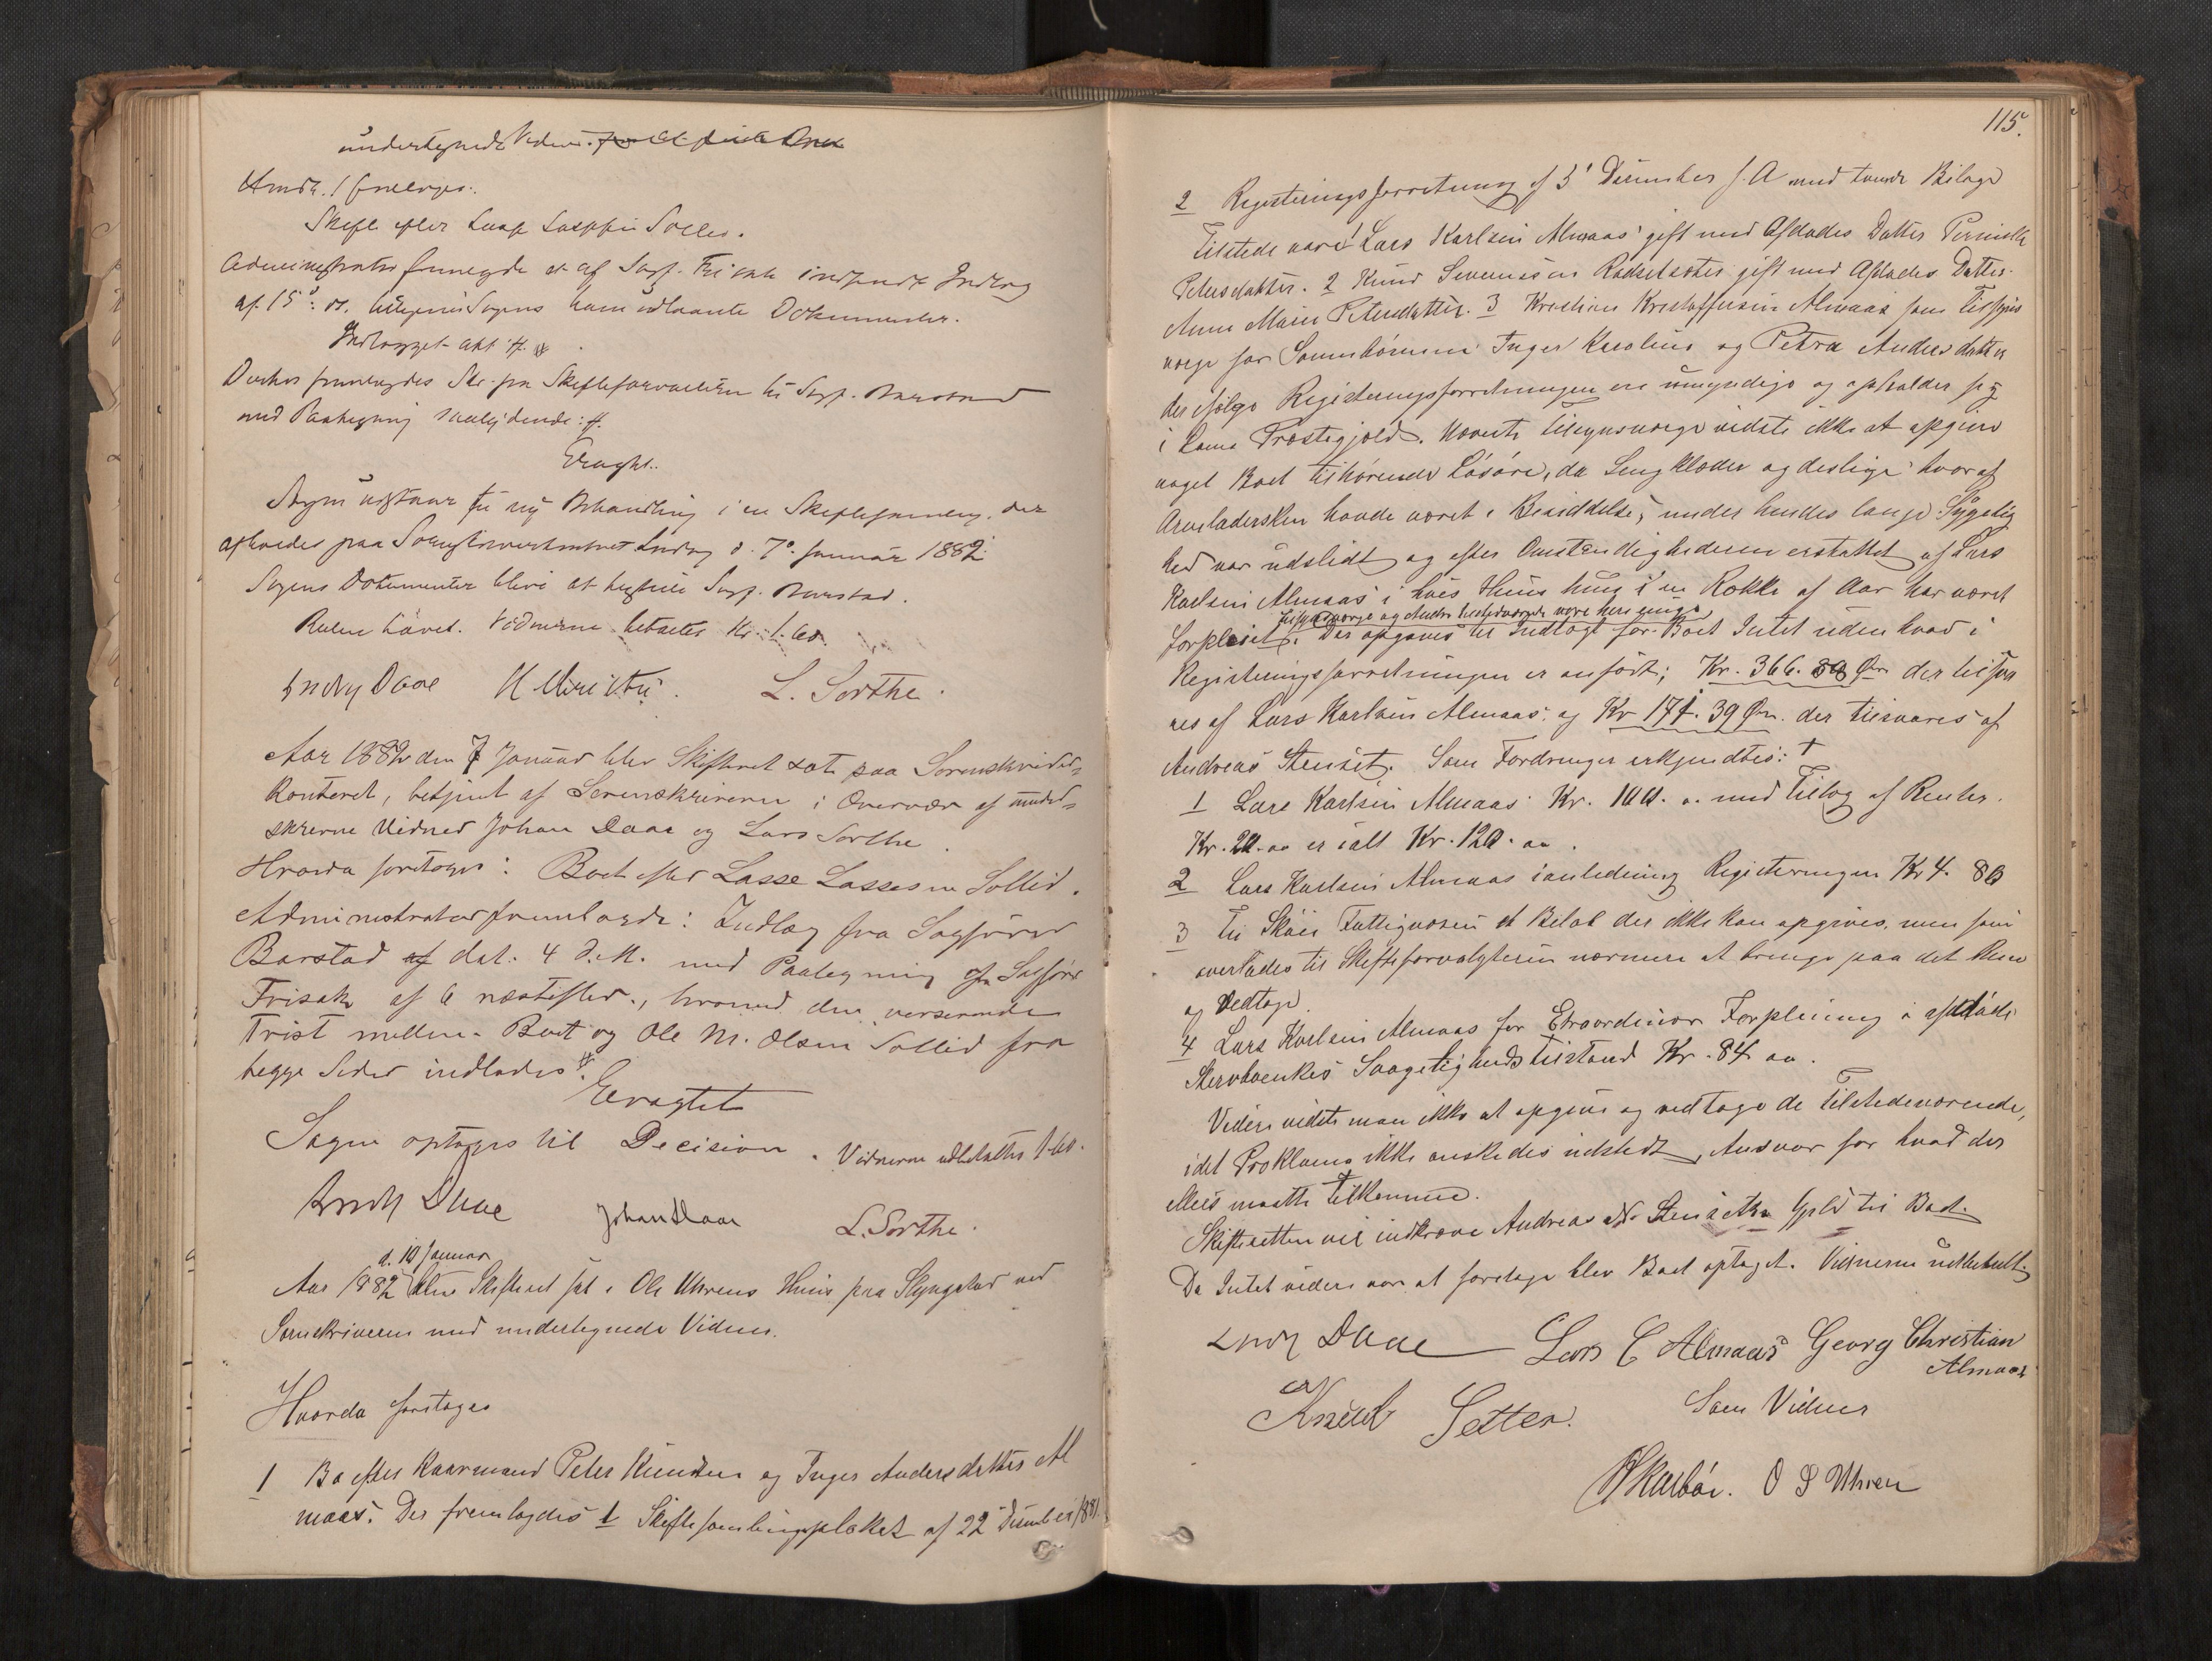 undertegnede Vidner.
Skifte efter Lasse Lassesen Sollid.
Administrator fremlagde et af Sagf. Frisak indsendt Indlæg
af 15 ds. tilligemed Sagens ham udlaante Dokumenter.
Indlægget akt. #.
Derhos fremlagdes Skr. fra Skifteforvalteren til Sagf. Barstad
med Paategning saalydende: #.
Eragtet.
Sagen udstaar til ny Behandling i en Skiftesamling, der
afholdes paa Sorenskriverkontoret Lørdag d. 7de Januar 1882.
Sagens Dokumenter blive at tilstille Sagf. Barstad.
Retten hævet. Vidnerne betaltes Kr. 1.60.
Daae L. Sorthe.
Aar 1882 den 7 Januar blev Skifteret sat paa Sorenskriver-
kontoret, betjent af Sorenskriveren i Overvær af under-
skrevne Vidner Johan Daae og Lars Sorthe.
Hvorda foretoges: Boet efter Lasse Lassesen Sollid.
Administrator fremlagde: Indlæg fra Sagfører
Barstad af dat. 4 d.M. med Paategning fra Sagfører
Frisak af 6 næstefter, hvorved den verserende
Trist mellem Boet og Ole M. Olsen Sollid fra
begge Sider indlades #.
Eragtet
Sagen optages til Decision. Vidnerne udbetaltes 1.60.
Daae Johan Daae L. Sorthe.
d. 10 Januar
Aar 1882 blev Skifteret sat i Ole Uhrens Huus paa Slyngstad ved
Sorenskriveren med undertegnede Vidner.
Hvorda foretoges
1 Bo efter Kaarmand Peter Knudsen og Inger Andersdatter Al
maas. Der fremlagdes 1 Skiftesamlingsplakat af 22 December 1881.
115.
2 Registreringsforretning af 3' December f. A med tvende Bilage
Tilstede vare 1 Lars Karlsen Almaas gift med Afdødes Datter Pernille
Petersdatter. 2 Knud Severinsen Rødsetsæter gift med Afdødes Datter
Anne Marie Petersdatter. 3 Kristian Kristoffersen Almaas som Tilsyns
værge for Sønnebørnene Inger Karoline og Petra Andersdatter
der ifølge Registreringsforretningen ere umyndige og opholder sig
i samme Præstegjeld. Nævnte Tilsynsværge vidste ikke at opgive
noget Boet tilhørende Løsøre, da Sengklæder og deslige hvoraf
Arveladersken havde været i Besiddelse, under hendes lange Sygelig
hed var udslidt og efter Omstændighederne erstattet af Lars
Karlsen Almaas i hvis Huus hun i en Række af Aar har været
Tilsynsværge og Andre tilstedeværende vare heri enige
forpleiet. Der opgaves til Indtægt for Boet Intet uden hvad i
Registreringsforretningen er anført; Kr. 366. 80 Øre der tilsva
res af Lars Karlsen Almaas, og Kr 171. 39 Øre. der tilsvares af
Andreas Stenset. Som Fordringer erkjendtes: †
1 Lars Karlsen Almaas Kr. 100. oo med Tillæg af Renter
Kr. 20. oo er ialt Kr. 120. oo.
2 Lars Karlsen Almaas ianledning Registeringen Kr 4. 80
3 Til Skøie Fattigvæsen et Beløb der ikke kan opgives, men som
overlades til Skifteforvalteren nærmere at bringe paa det Rene
og Vedtage.
4 Lars Karlsen Almaas for Extraordinær Forpleining i afdøde
Stervboenkes Svagelighedstilstand Kr. 84 oo.
Videre vidste man ikke at opgive og vedtage de Tilstedeværende,
idet Proklama ikke ønskedes udstedt, Ansvar for hvad der
ellers maatte tilkomme.
Skifteretten vil indkræve Andreas Stensets Gjeld til Boet.
Da Intet videre var at foretage blev Boet optaget. Vidnerne udbetalt.
Daae Lars C Almaas Georg Christian
Almaas
Knud Setter. Som Vidner
O S Uhren